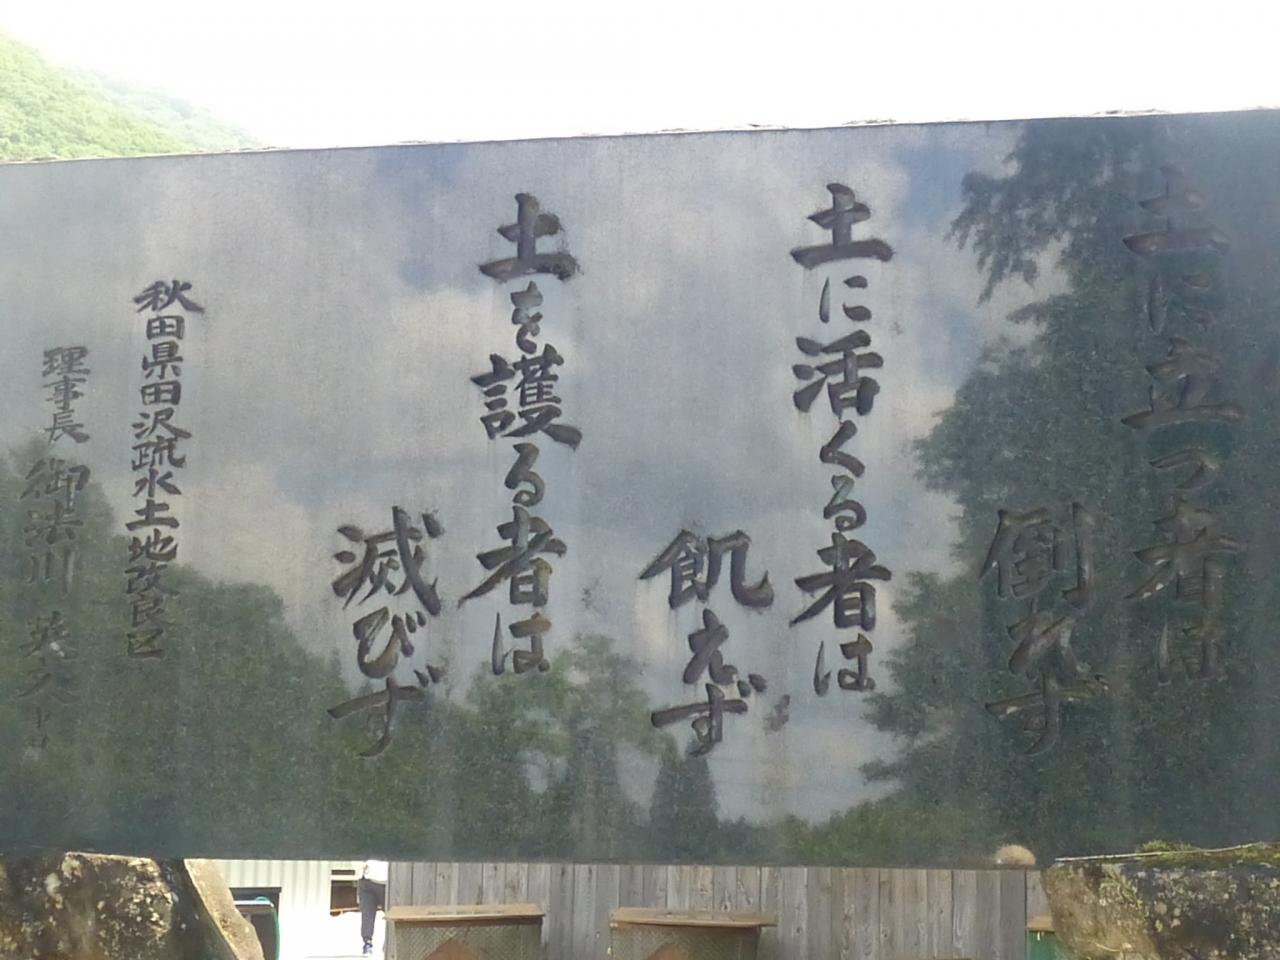 土に立つ者は
倒れず
土に活くる者は
飢えず
土を護る者は
滅びず
秋田県田沢疏水土地改良区
理事長 御法川 英文